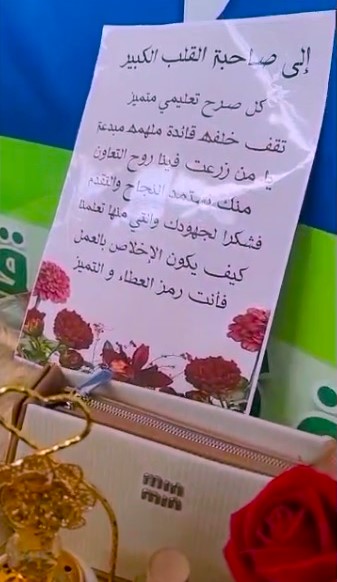 إلى صاحبة القلب الكبير
كل صرح تعليمي متميز
تقف خلفه قائدة ملهمه مبدعة
يا من زرعت فينا روح التعاون
منك نستمد النجاح والتقدم
فشكرا لجهودك والتي منها تعلمنا
كيف يكون الإخلاص بالعمل
فأنت رمز العطاء و التميز
min
min